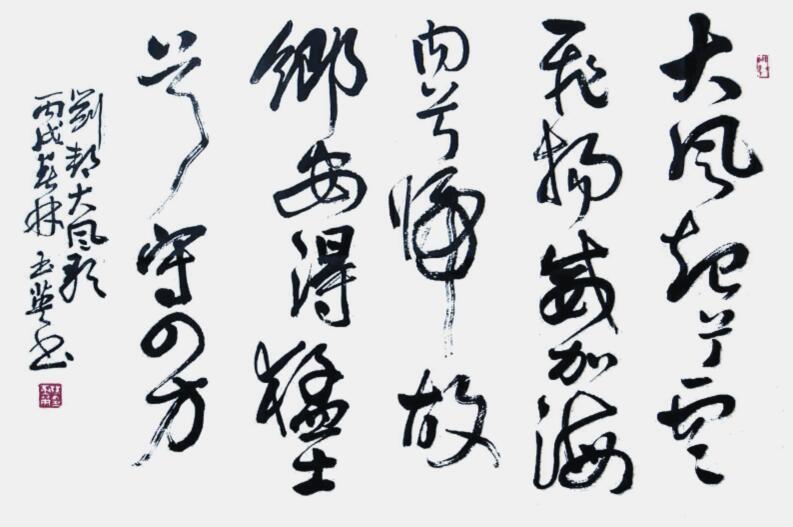 大風起兮雲
飛揚威加海
内兮歸故
鄉安得猛士
兮守四方
劉邦大風歌
丙戌春林玉英书